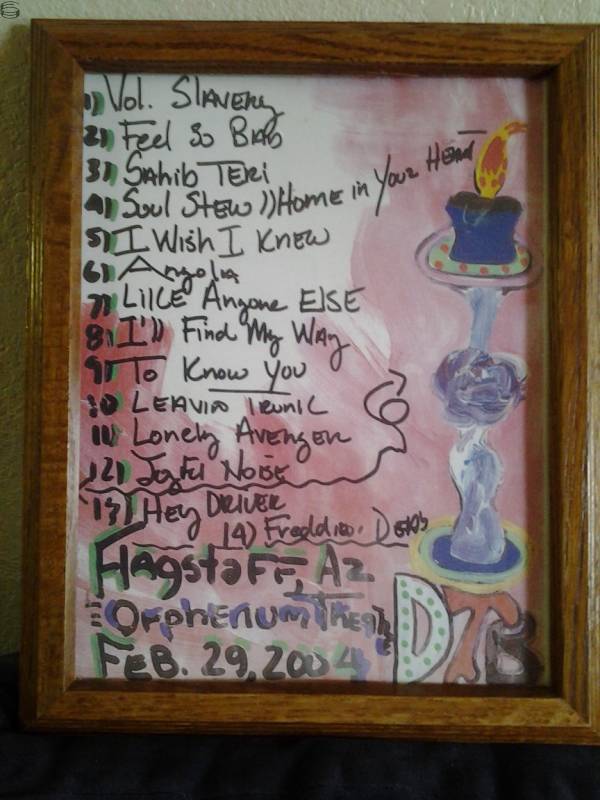 1) Vol. Slavery
2) Feel So Bad
3) Sahib Teri
4) Soul Stew )) Home in Your Heart
5) I Wish I Knew
6) Angola
7) Like Anyone Else
8) I'll Find My Way
9) To Know You
10 Leavin Trunk
11) Lonely Avenger
12) Joyful Noise
13) Hey Driver
14) Freddie.
Flagstaff, Az
Orpheum Theatre
Feb. 29, 2004
DTB